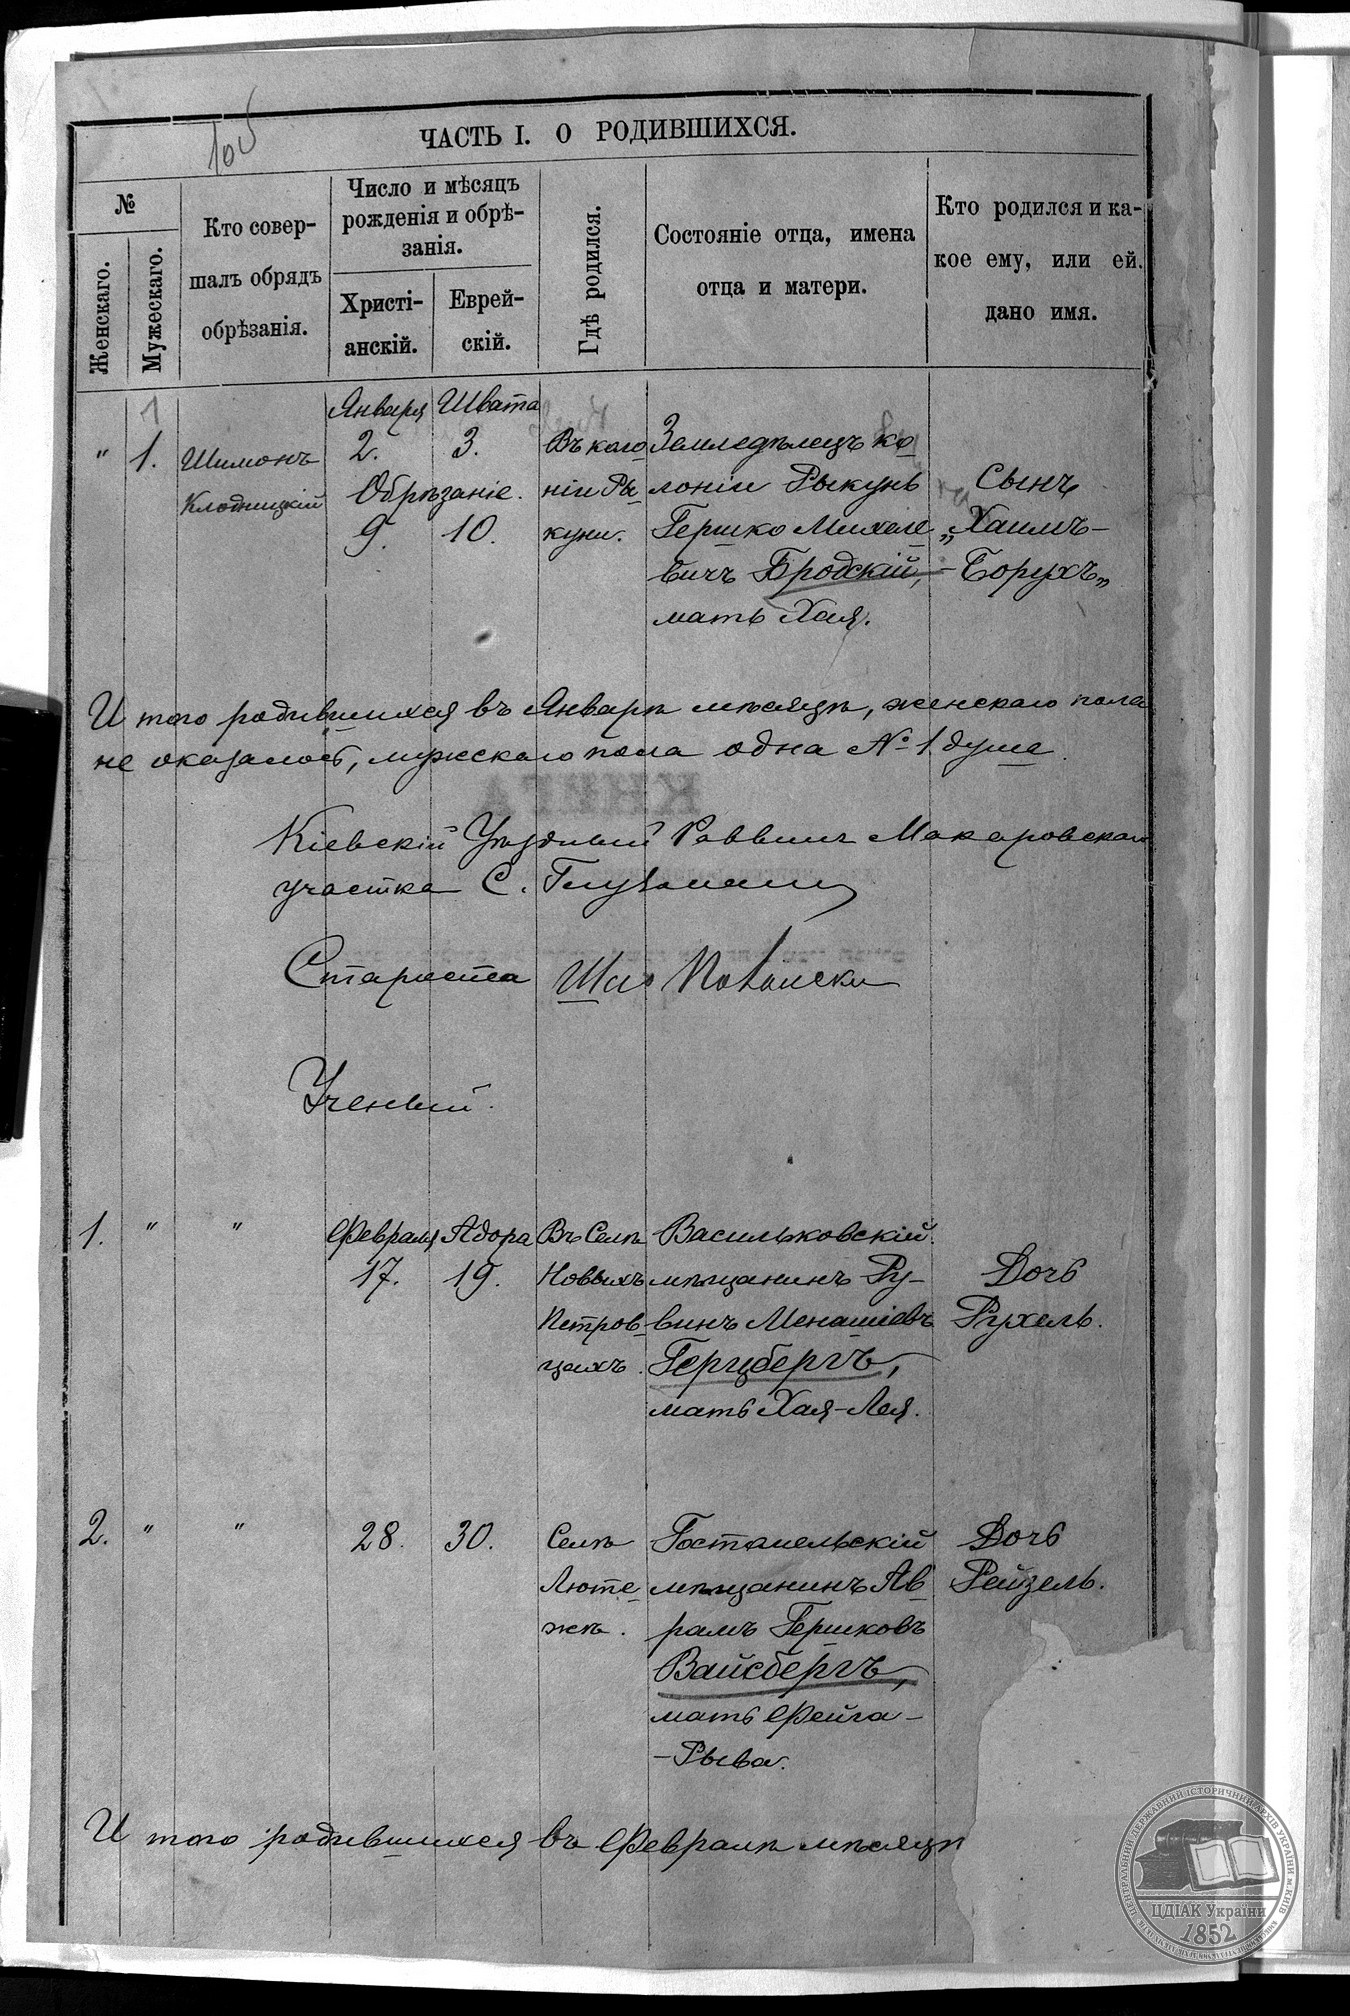 ЧАСТЬ I. О РОДИВШИХСЯ.
№
Женскаго.
Мужескаго.
Кто совер-
шалъ обрядъ
обрѣзанія.
Число и мѣсяцъ
рожденія и обрѣ-
занія.
Христі-
анскій.
Еврей-
скій.
Гдѣ родился.
Состояніе отца, имена
отца и матери.
Кто родился и ка-
кое ему, или ей.
дано имя.
1
" 1.
Шимонъ
Клотницкій
Января Швата
2. 3.
Обрѣзаніе.
9. 10.
Въ коло
ніи Ры
куни.
Земледѣлецъ ко
лоніи Рыкунь
Гершко Михеле
вичъ Бродскій,
мать Хая.
Сынъ
„Хаимъ-
-Борухъ„
И того родившихся въ Январѣ мѣсяцѣ, женскаго пола
не оказалось, мужскаго пола одна № 1 душа.
КНИГА
Кіевскій Уѣздный Раввинъ Макаровскаго
участка С.
Староста
Ученый.
1. " "
Февраля Адора
17. 19.
Въ Селѣ
Новыхъ
Петров-
цахъ.
Васильковскій
мѣщанинъ Ру-
винъ Менашіевъ
Герцбергъ,
мать Хая-Лея.
Дочь
Рухель.
2. " "
28. 30.
Селѣ
Люте
жѣ.
Гостомельскій
мѣщанинъ Ав
рамъ Гершковъ
Вайсбергъ,
мать Фейга-
-Рыва.
Дочь
Рейзель.
И того родившихся въ Февралѣ мѣсяцѣ
ЦЕНТРАЛЬНИЙ ДЕРЖАВНИЙ ІСТОРИЧНИЙ АРХІВ УКРАЇНИ м. КИЇВ
ЦДІАК України
1852